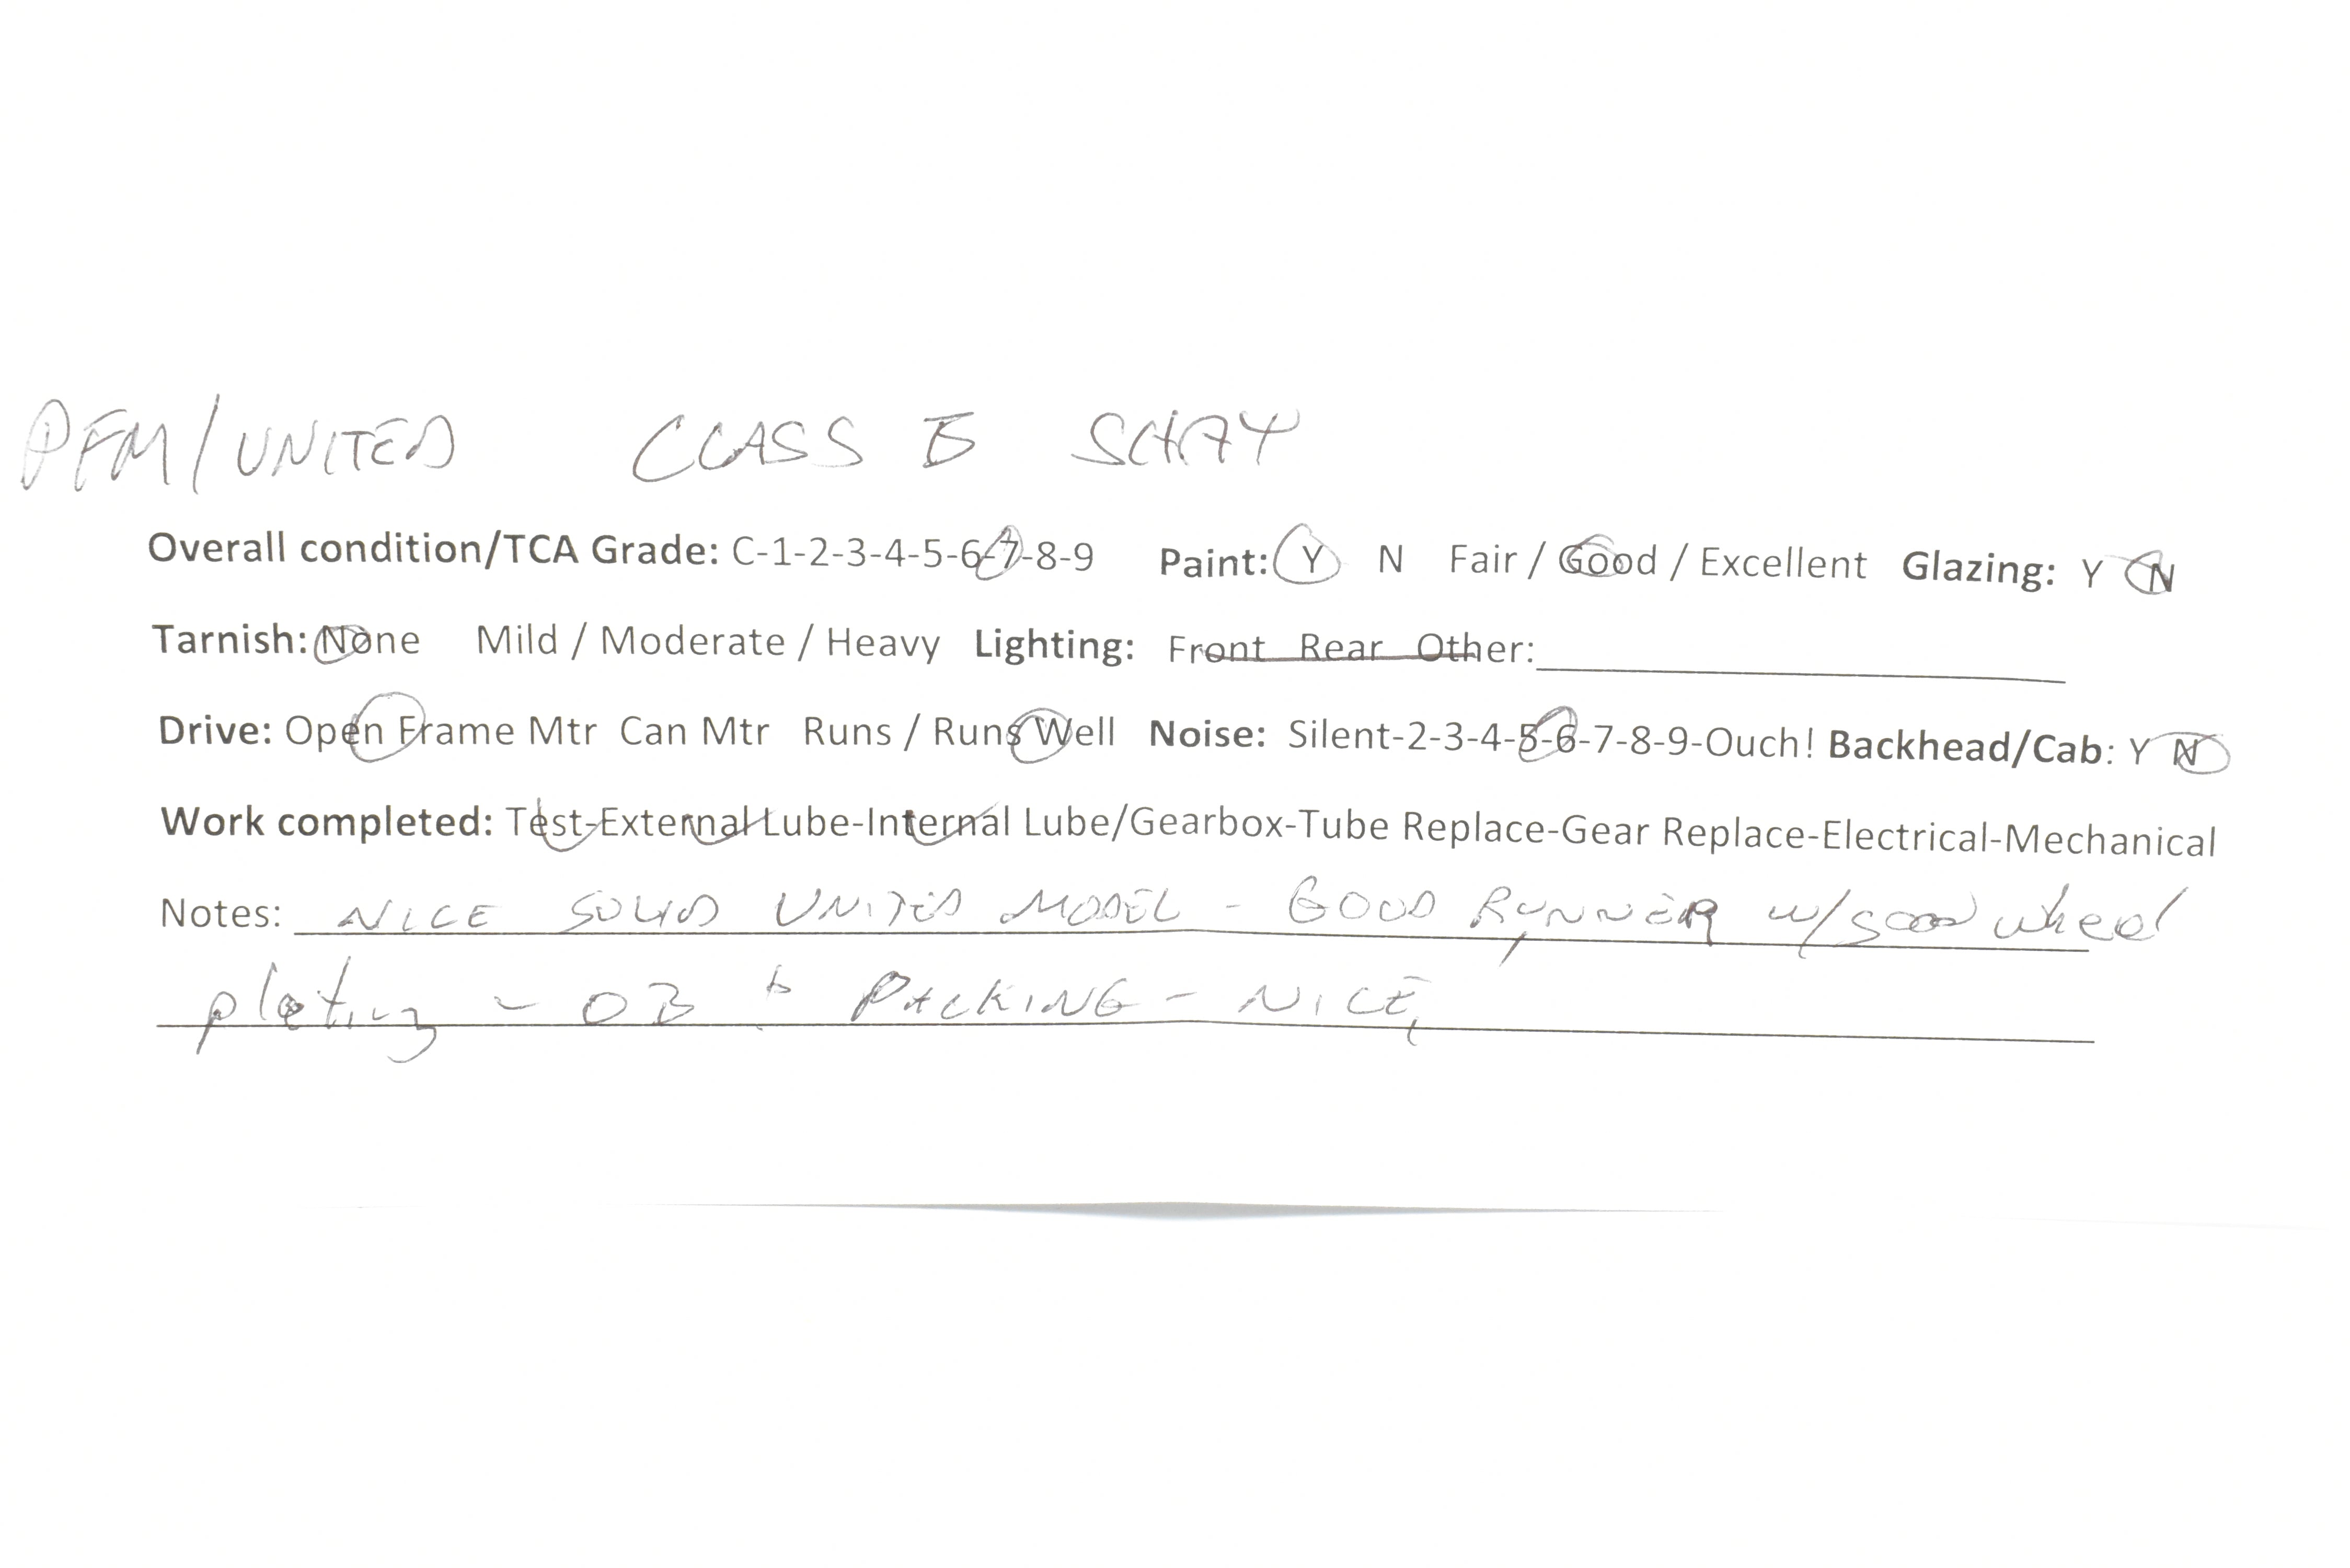 PFM/UNITED CLASS B SHAY
Overall condition/TCA Grade: C-1-2-3-4-5-6-7-8-9 Paint: Y N Fair / Good / Excellent Glazing: Y N
Tarnish: None Mild / Moderate / Heavy Lighting: Front Rear Other:
Drive: Open Frame Mtr Can Mtr Runs / Runs Well Noise: Silent-2-3-4-5-6-7-8-9-Ouch! Backhead/Cab: Y N
Work completed: Test-External Lube-Internal Lube/Gearbox-Tube Replace-Gear Replace-Electrical-Mechanical
Notes: NICE SOLID UNITED MODEL - GOOD RUNNER w/GOOD wheel
plating - OB & PACKING - NICE